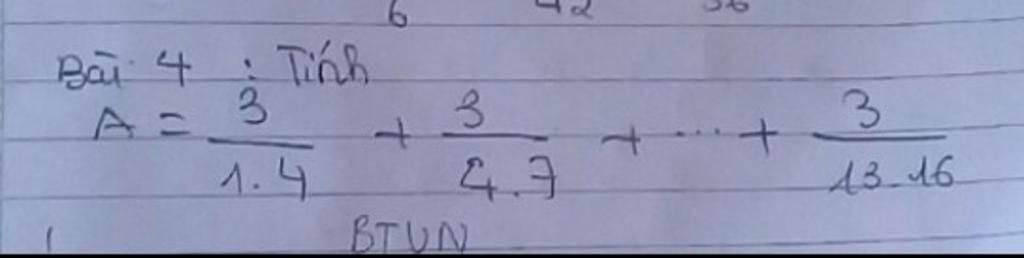 6 42 56
Bài 4 : Tính
A = 3/1.4 + 3/4.7 + ... + 3/13.16
BTVN